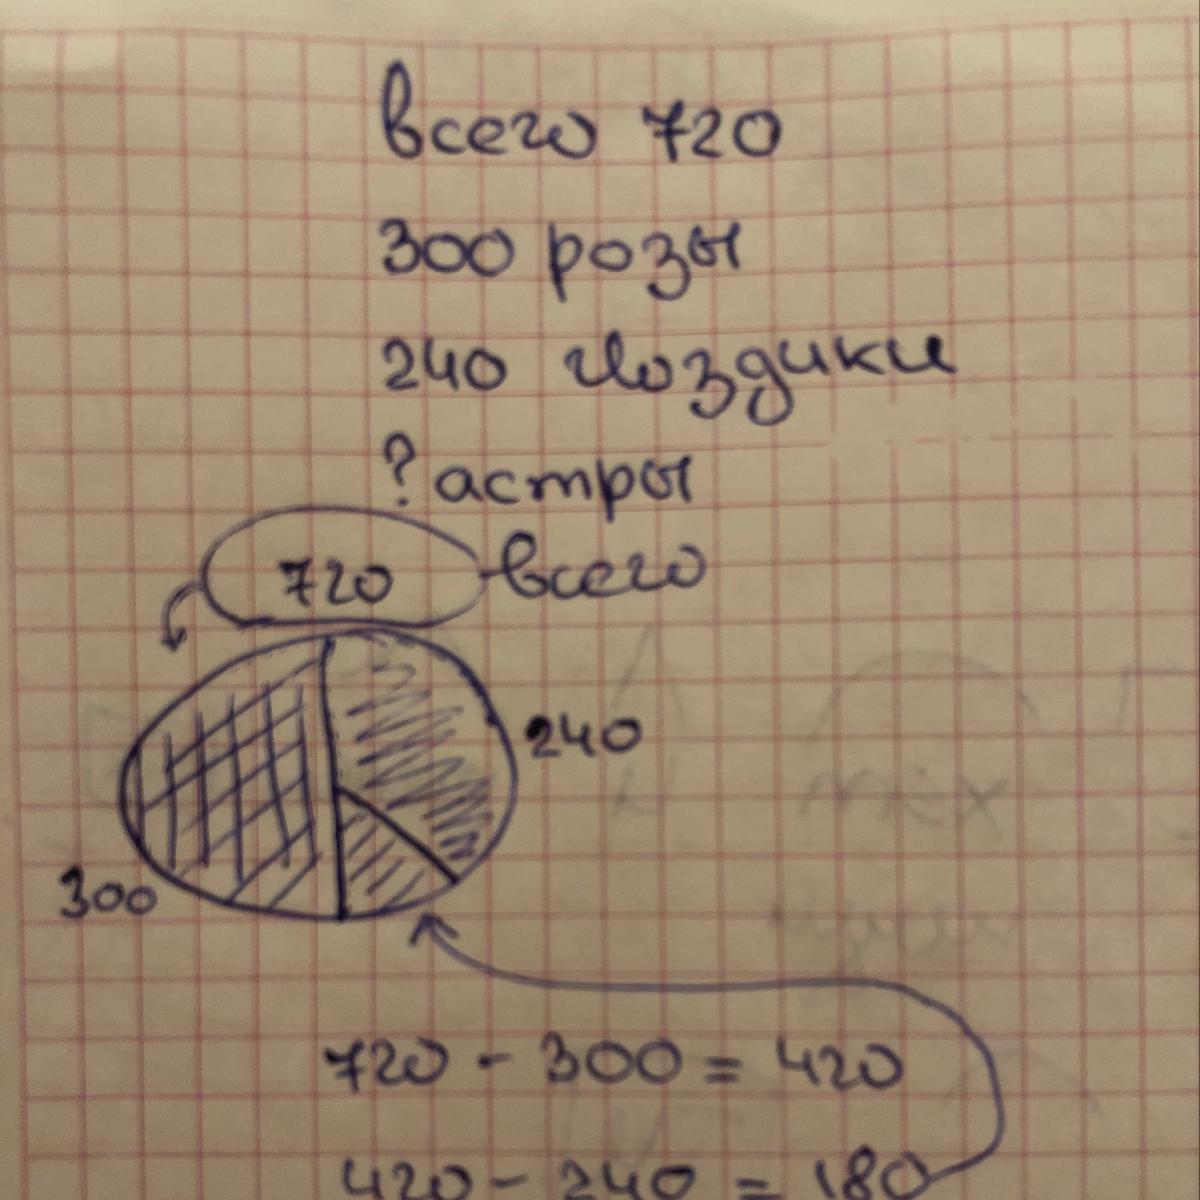 всего 720
300 розы
240 гвоздики
? астры
720 - всего
240
300
720 - 300 = 420
420 - 240 = 180